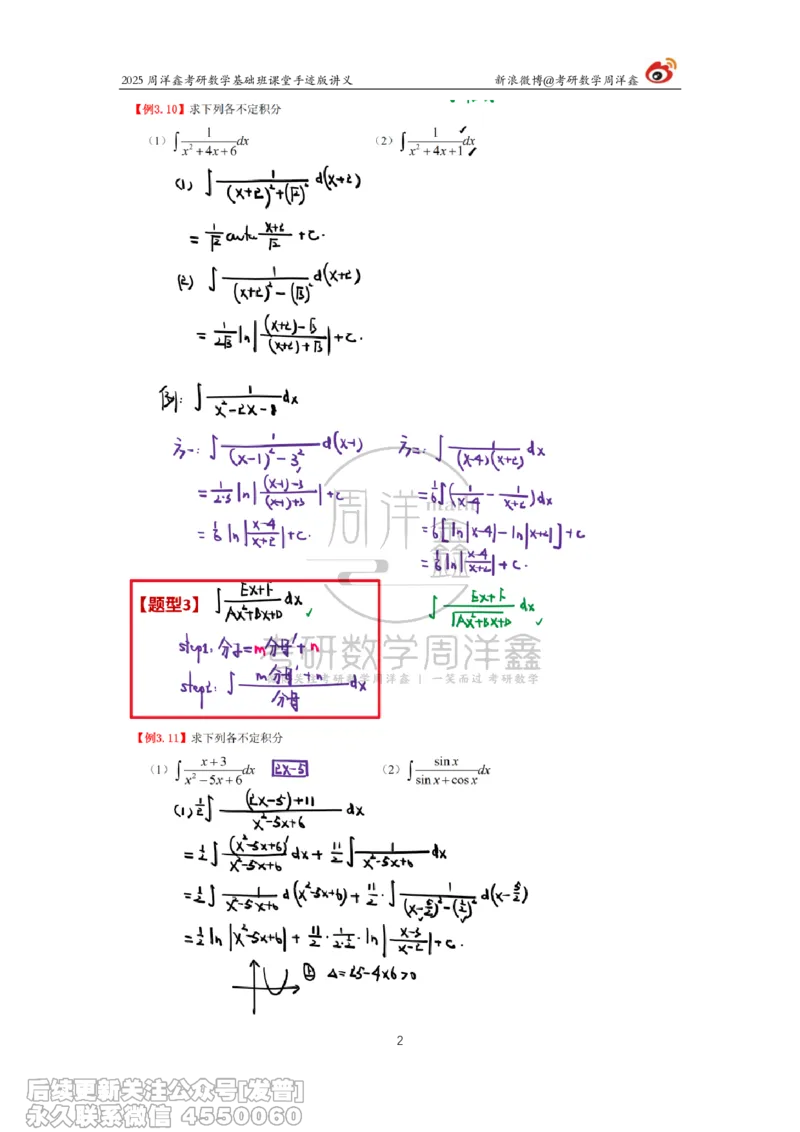 2025 周洋鑫考研数学基础班课堂手迹版讲义 新浪微博@考研数学周洋鑫
【例3.10】求下列各不定积分
（1）∫ 1/(x²+4x+6) dx （2）∫ 1/(x²+4x+1) dx
(1) ∫ 1/((x+2)²+(√2)²) d(x+2)
= 1/√2 arctan (x+2)/√2 + C.
(2) ∫ 1/((x+2)²-(√3)²) d(x+2)
= 1/(2√3) ln|((x+2)-√3)/((x+2)+√3)| + C.
例: ∫ 1/(x²-2x-8) dx
方一: ∫ 1/((x-1)²-3²) d(x-1)
= 1/(2·3) ln|((x-1)-3)/((x-1)+3)| + C
= 1/6 ln|(x-4)/(x+2)| + C.
方二: ∫ 1/((x-4)(x+2)) dx
= 1/6 ∫(1/(x-4) - 1/(x+2)) dx
= 1/6 [ln|x-4| - ln|x+2|] + C
= 1/6 ln|(x-4)/(x+2)| + C.
周洋鑫
math
【题型3】 ∫ (Ex+F)/(Ax²+Bx+D) dx
step1: 分子=m分母'+n
step2: ∫ (m分母'+n)/分母 dx
∫ (Ex+F)/√(Ax²+Bx+D) dx
考研数学周洋鑫
考研数学周洋鑫 | 一笑而过 考研数学
【例3.11】求下列各不定积分
（1）∫ (x+3)/(x²-5x+6) dx 2x-5 （2）∫ sin x/(sin x+cos x) dx
(1) 1/2 ∫ ((2x-5)+11)/(x²-5x+6) dx
= 1/2 ∫ (x²-5x+6)'/(x²-5x+6) dx + 11/2 ∫ 1/(x²-5x+6) dx
= 1/2 ∫ 1/(x²-5x+6) d(x²-5x+6) + 11/2 · ∫ 1/((x-5/2)²-(1/2)²) d(x-5/2)
= 1/2 ln|x²-5x+6| + 11/2 · 1/(2·1/2) · ln|(x-3)/(x-2)| + C.
① Δ=25-4×6>0
2
后续更新关注公众号[发普]
永久联系微信 4550060